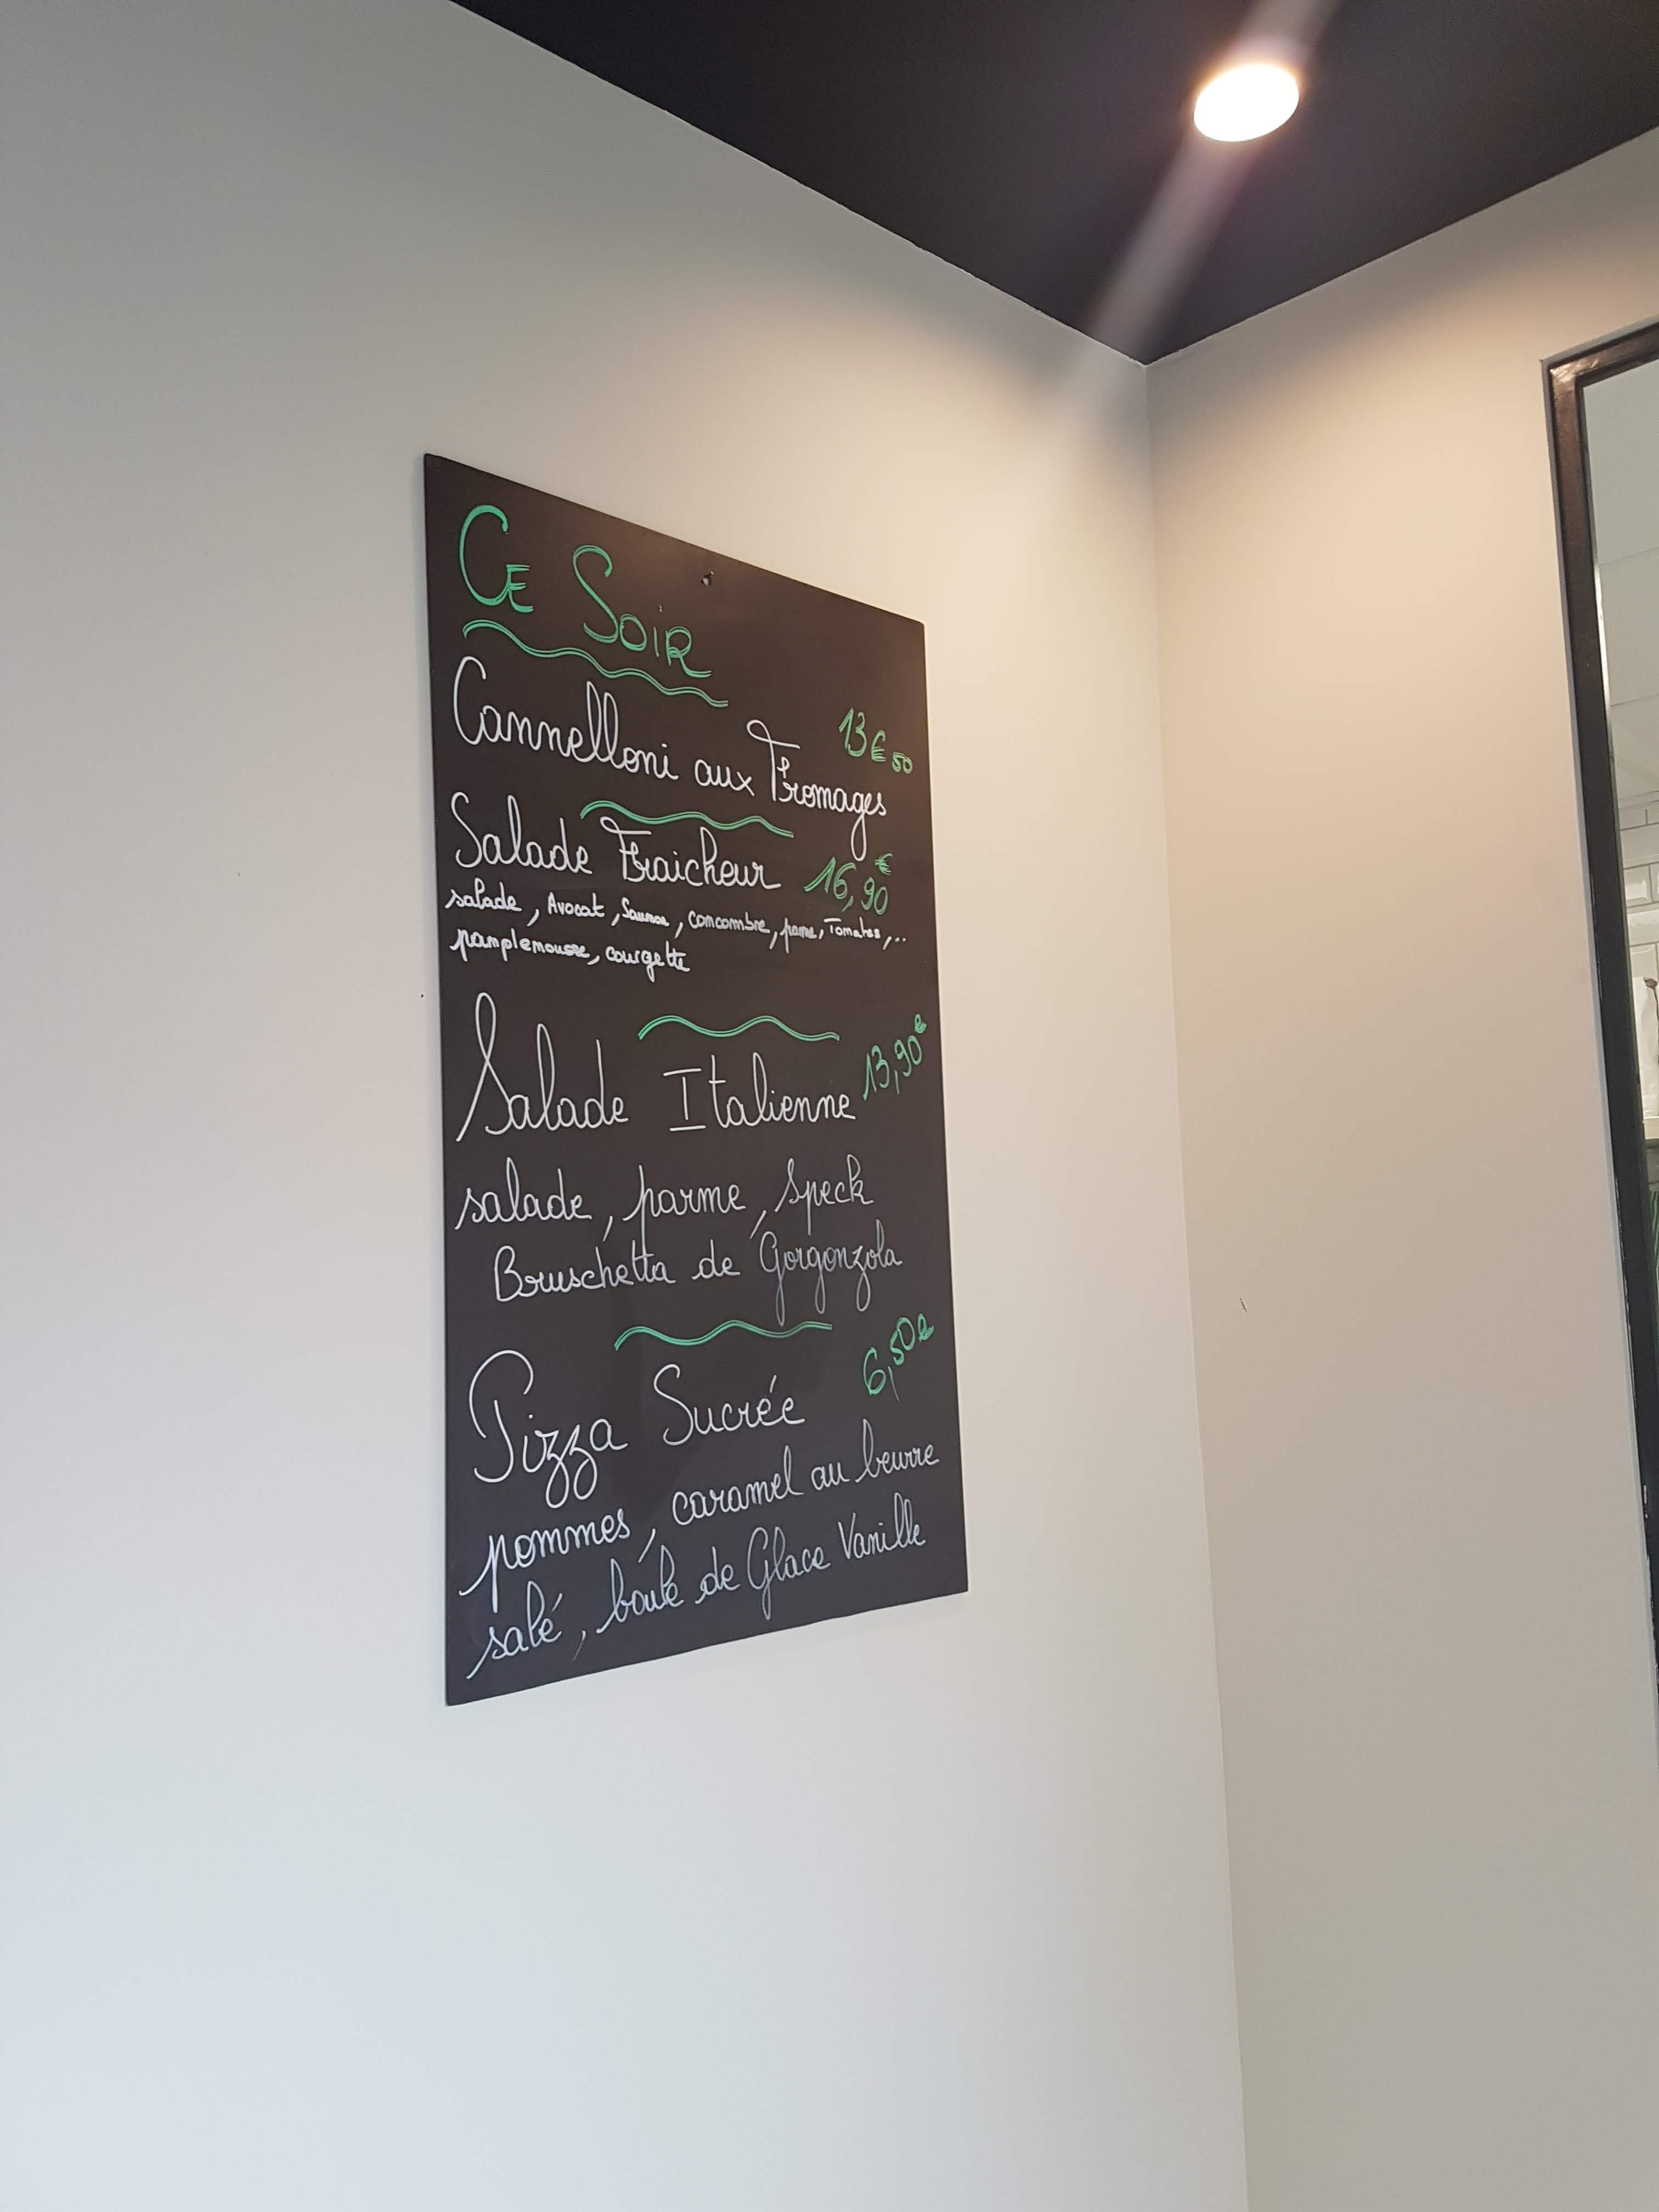 CE SOIR
Cannelloni aux Fromages 13€50
Salade Fraicheur 16,90€
salade, Avocat, Saumon, concombre, pomme, Tomates,..
pamplemousse, courgette
Salade Italienne 13,90€
salade, parme, speck
Bruschetta de Gorgonzola
Pizza Sucrée 6,50€
pommes, caramel au beurre
salé, boule de Glace Vanille